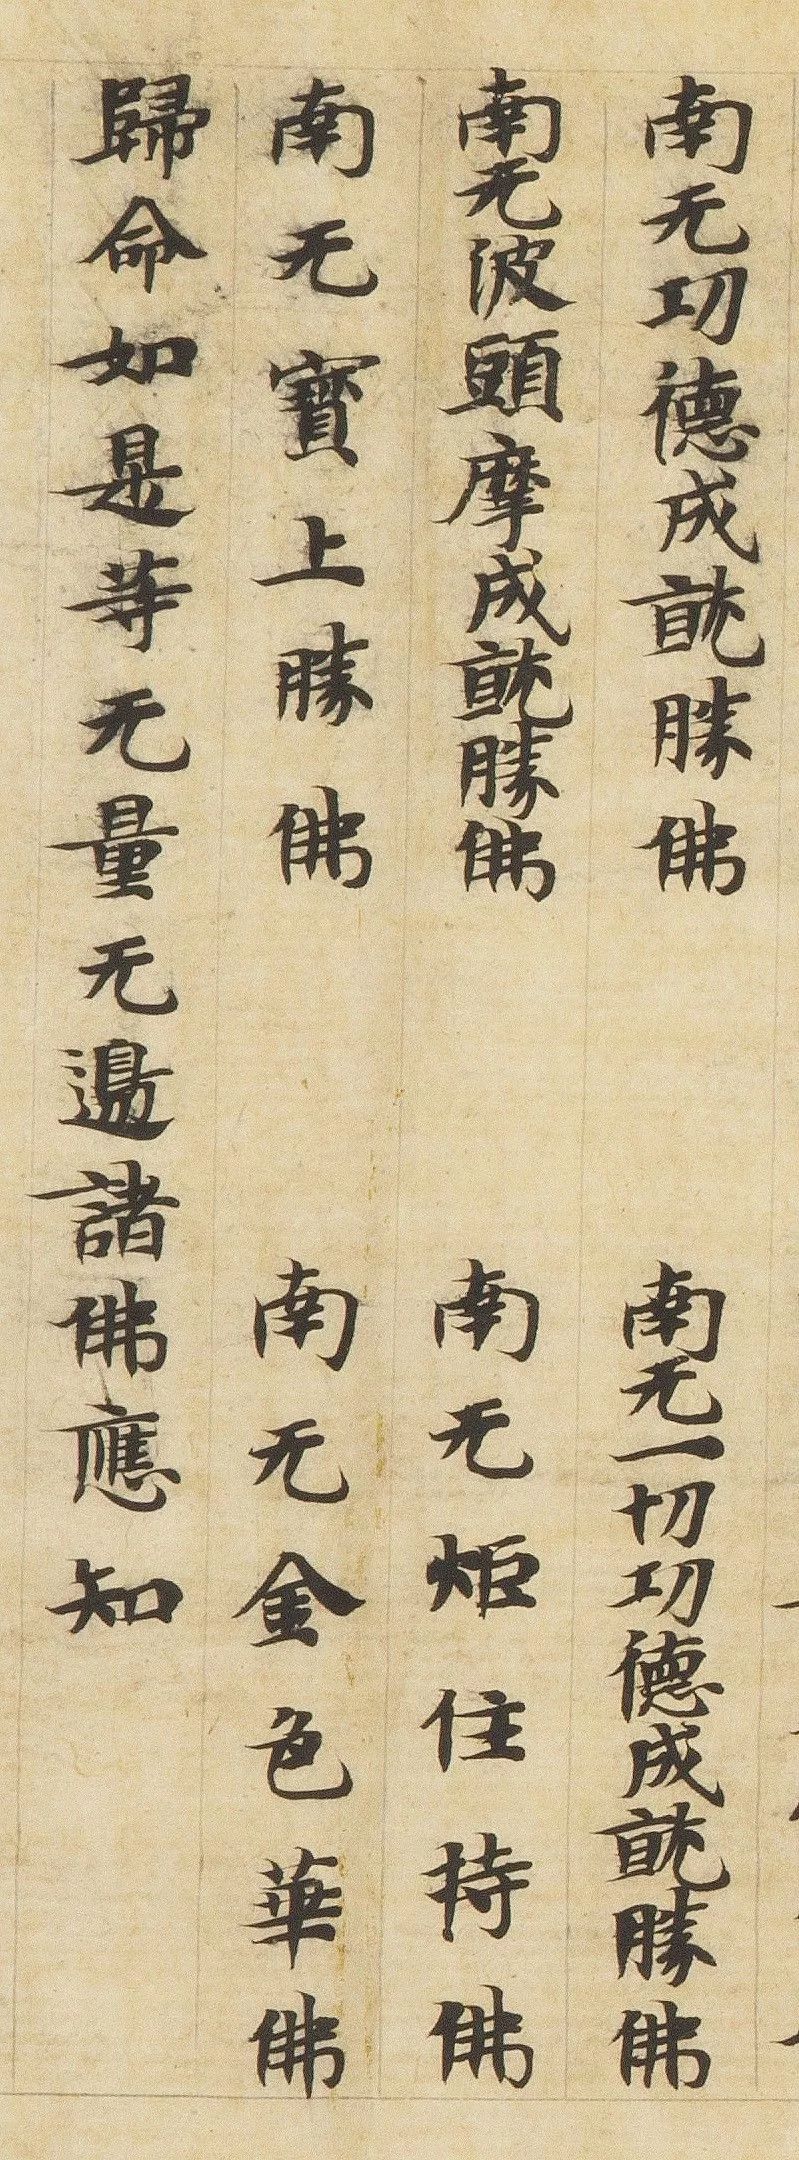 南无功德成就勝佛 南无一切功德成就勝佛
南无波頭摩成就勝佛 南无炬住持佛
南无寶上勝佛 南无金色華佛
歸命如是等无量无邊諸佛應知